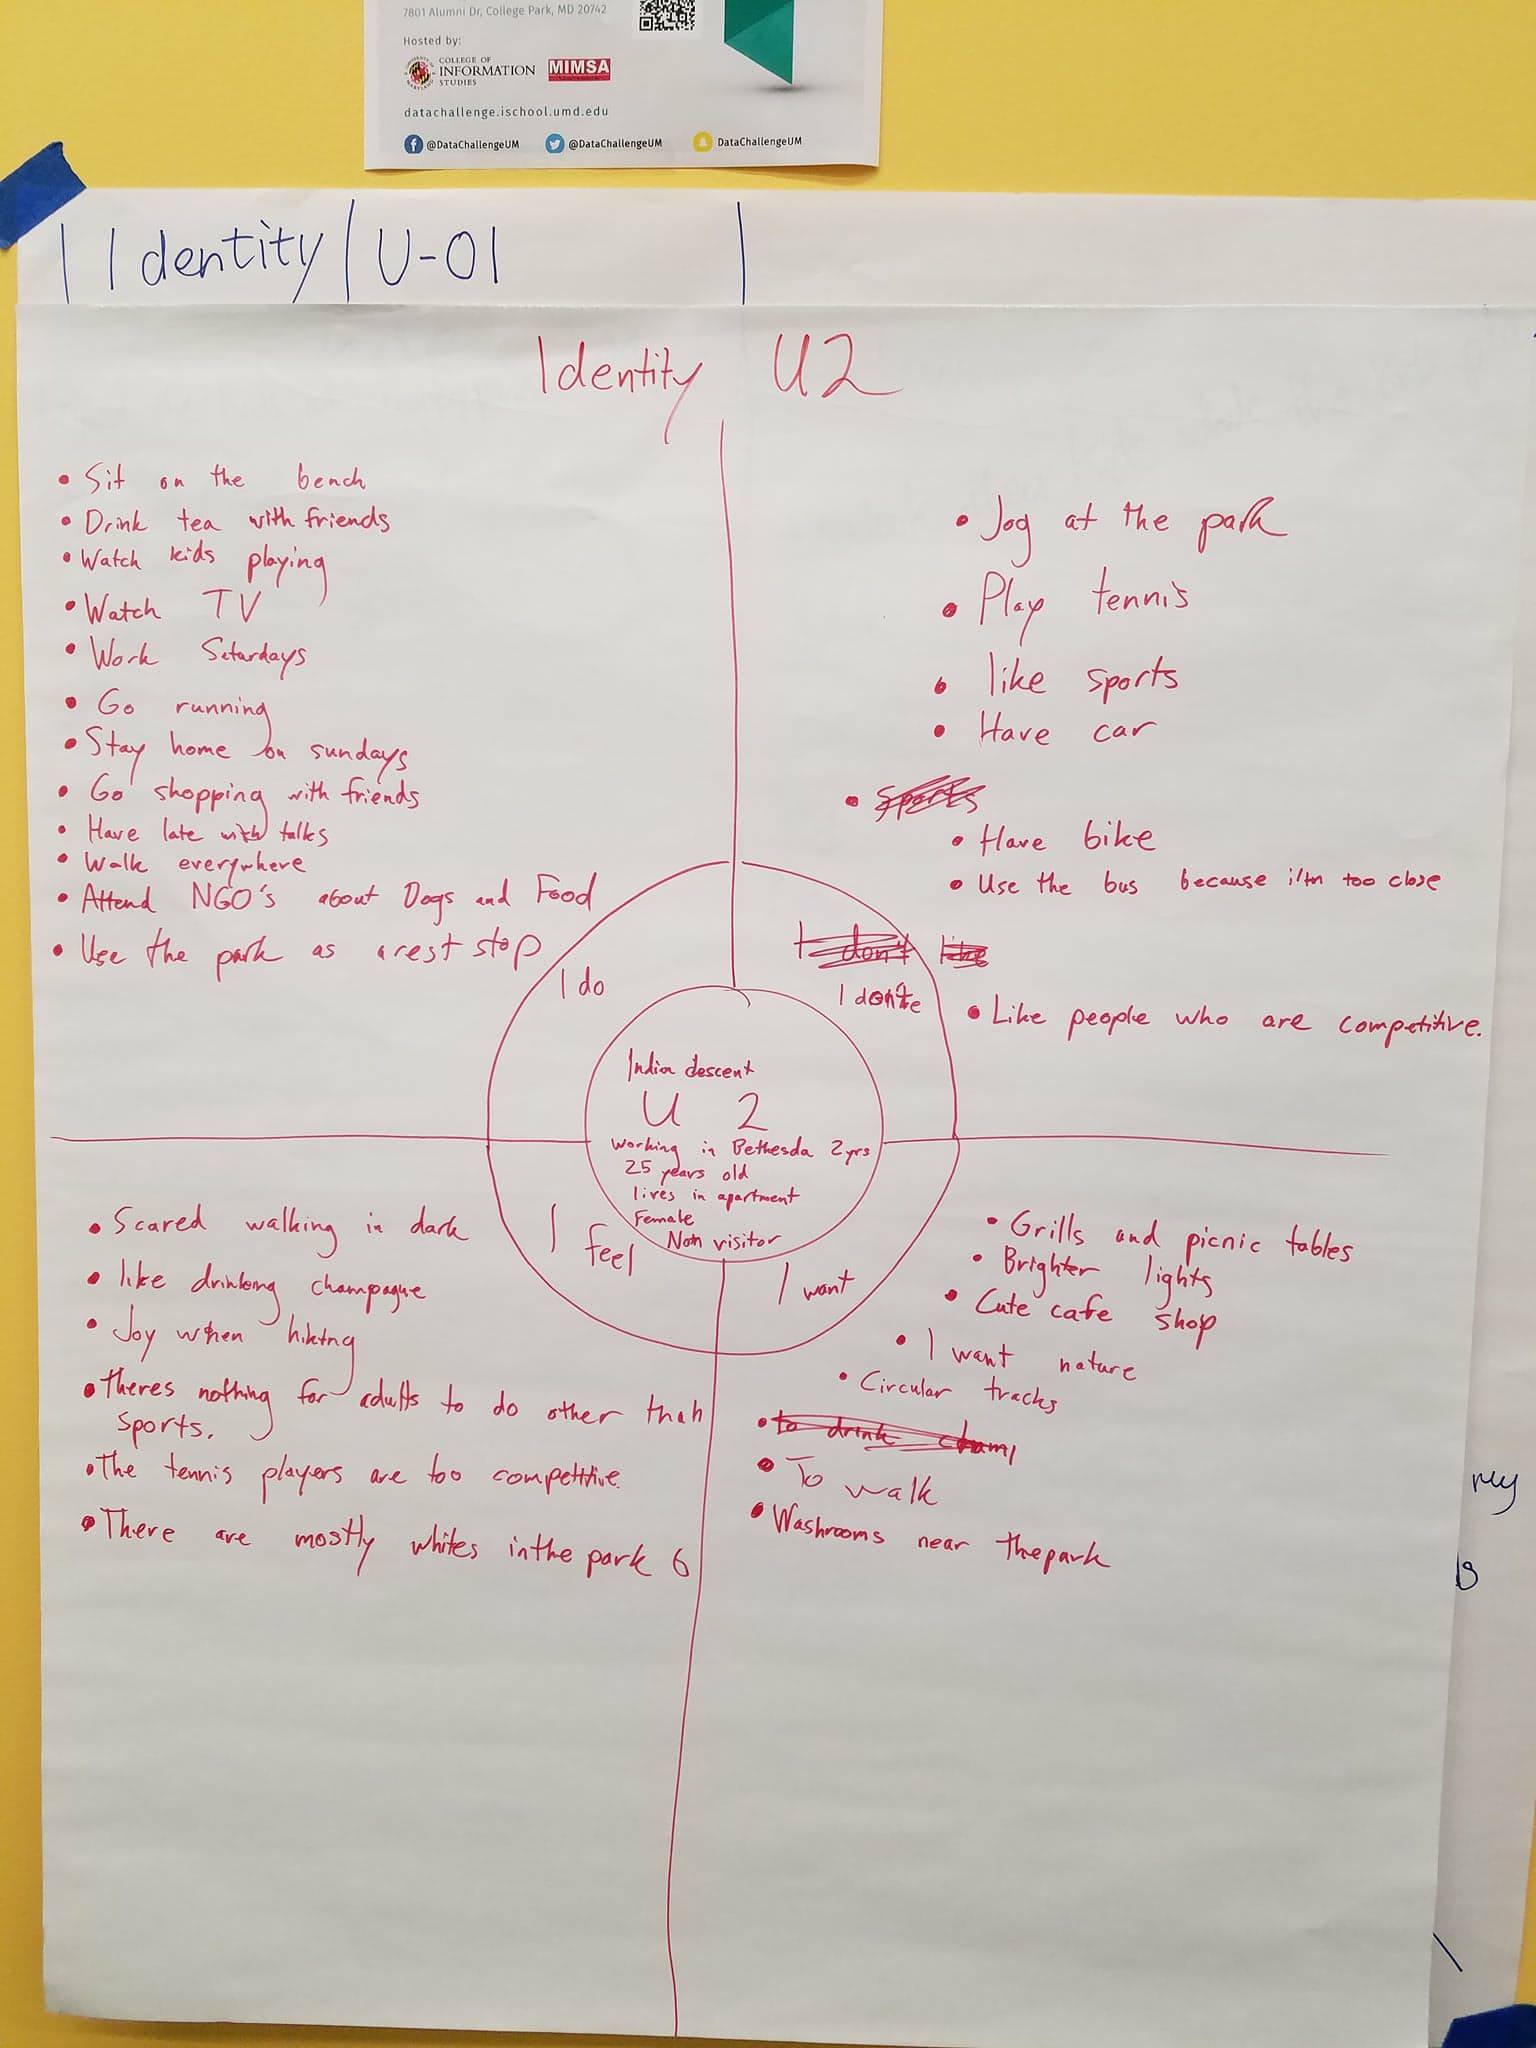 7801 Alumni Dr, College Park, MD 20742
Hosted by:
COLLEGE OF
INFORMATION
STUDIES
MIMSA
datachallenge.ischool.umd.edu
@DataChallengeUM
@DataChallengeUM
DataChallengeUM
Identity U-01
Identity U2
• Sit on the bench
• Drink tea with friends
• Watch kids playing
• Watch TV
• Work Saturdays
• Go running
• Stay home on sundays
• Go shopping with friends
• Have late with talks
• Walk everywhere
• Attend NGO's about Dogs and Food
• Use the park as a rest stop
I do
• Jog at the park
• Play tennis
• like sports
• Have car
• Sports
• Have bike
• Use the bus because i'm too close
I don't like
I don't
• Like people who are competitive.
India descent
U 2
Working in Bethesda 2yrs
25 years old
lives in apartment
Female
Non visitor
I feel
• Scared walking in dark
• like drinking champagne
• Joy when hiking
• Theres nothing for adults to do other than
sports.
• The tennis players are too competitive.
• There are mostly whites in the park 6
I want
• Grills and picnic tables
• Brighter lights
• Cute cafe shop
• I want nature
• Circular tracks
• to drink cham
• To walk
• Washrooms near the park